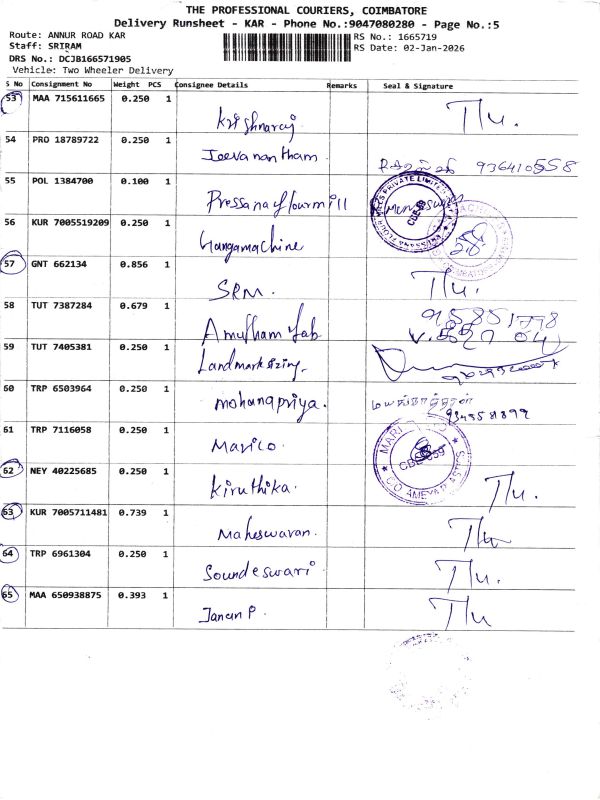 THE PROFESSIONAL COURIERS, COIMBATORE
Delivery Runsheet - KAR - Phone No.:9047080280 - Page No.:5
Route: ANNUR ROAD KAR RS No.: 1665719
Staff: SRIRAM RS Date: 02-Jan-2026
DRS No.: DCJB166571905
Vehicle: Two Wheeler Delivery
S No Consignment No Weight PCS Consignee Details Remarks Seal & Signature
53 MAA 715611665 0.250 1 Krishnaraj
54 PRO 18789722 0.250 1 Jeevanantham
55 POL 1384700 0.100 1 Pressana flourmill
56 KUR 7005519209 0.250 1 Gangamachine
57 GNT 662134 0.856 1 SRM.
58 TUT 7387284 0.679 1 Amutham fab
59 TUT 7405381 0.250 1 Landmark sizing.
60 TRP 6503964 0.250 1 mohanapriya. 
61 TRP 7116058 0.250 1 Marico. CBE-659
62 NEY 40225685 0.250 1 Kiruthika.
63 KUR 7005711481 0.739 1 Maheswaran.
64 TRP 6961304 0.250 1 Soundeswari.
65 MAA 650938875 0.393 1 Janan P.